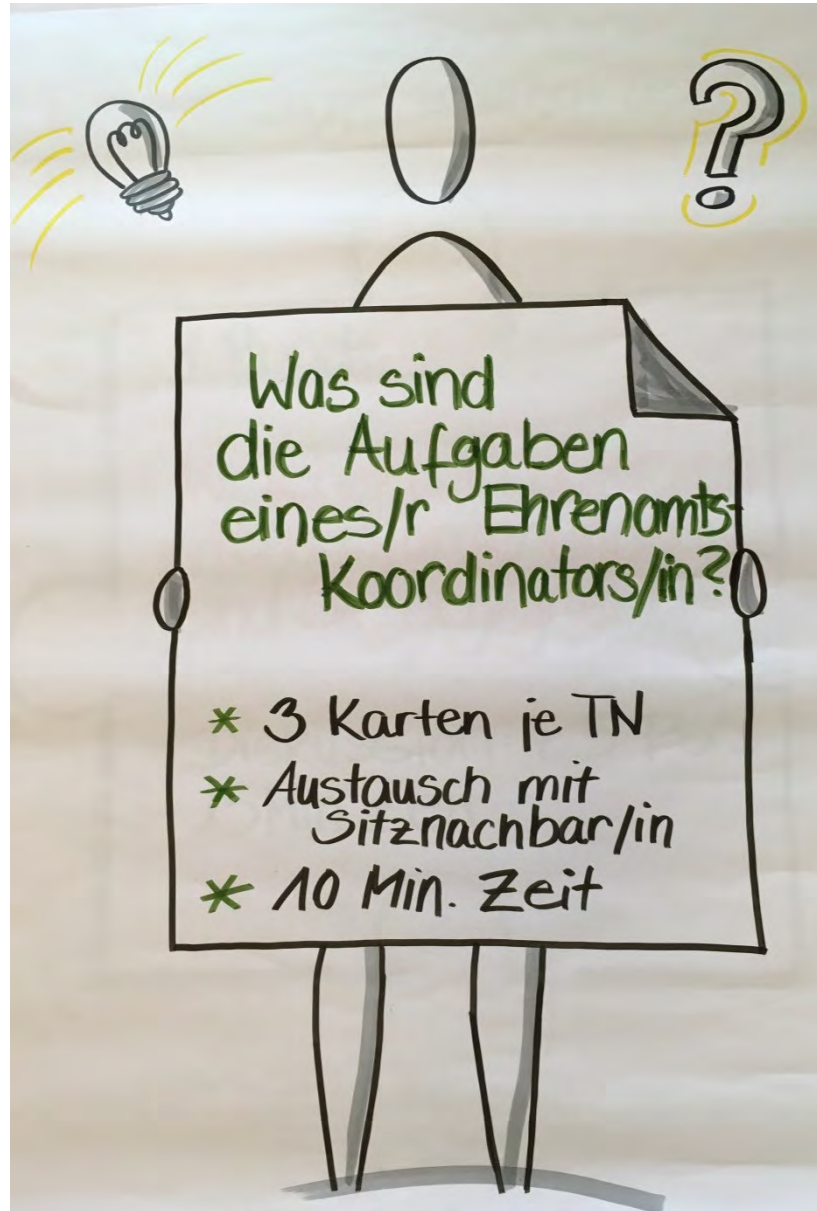 Was sind
die Aufgaben
eines/r Ehrenamts-
Koordinators/in?
* 3 Karten je TN
* Austausch mit
Sitznachbar/in
* 10 Min. Zeit
?